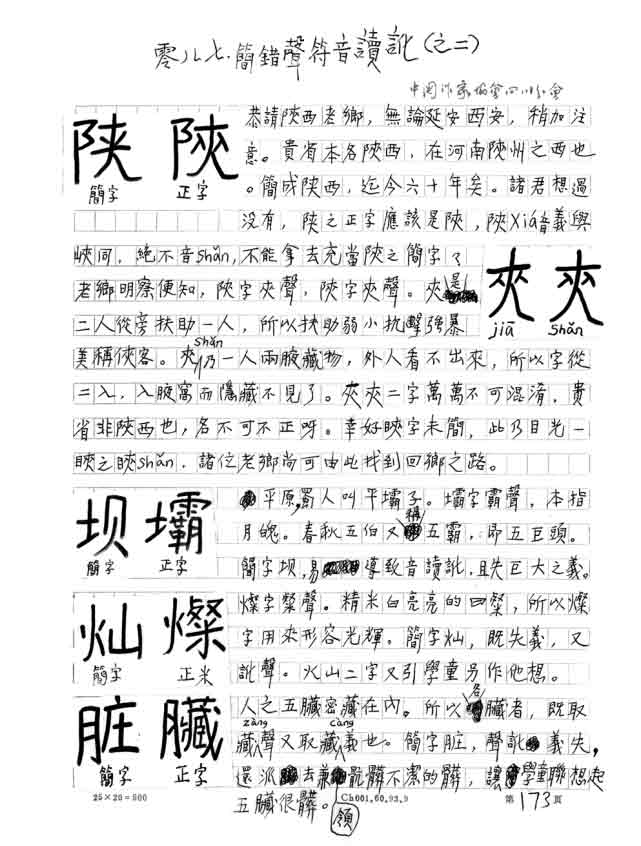 零八七.簡錯聲符音讀訛(之二)
中国作家協會四川分會
恭請陝西老鄉，無論延安西安，稍加注
意。貴省本名陝西，在河南陝州之西也
。簡成陕西，迄今六十年矣。諸君想過
没有，陕之正字應該是陜，陜Xiá音義與
峽同，絕不音Shǎn，不能拿去充當陝之簡字。
陕 陝
簡字 正字
老鄉明察便知，陜字夾聲，陝字㚒聲。夾是
二人從旁扶助一人，所以扶助弱小抗擊強暴
美稱俠客。㚒Shǎn乃一人兩腋藏物，外人看不出來，所以字從
二入，入腋窩而隱藏不見了。夾㚒二字萬萬不可混淆，貴
省非陜西也，名不可不正呀。幸好睒字未簡，此乃目光一
睒之睒Shǎn，諸位老鄉尚可由此找到回鄉之路。
夾 㚒
jiā Shǎn
平原，蜀人叫平壩子。壩字霸聲，本指
月魄。春秋五伯又稱五霸，即五巨頭。
簡字坝，易導致音讀訛，且失巨大之義。
坝 壩
簡字 正字
燦字粲聲。精米白亮亮的曰粲，所以燦
字用來形容光輝。簡字灿，既失義，又
訛聲。火山二字又引學童另作他想。
灿 燦
簡字 正米
人之五臟密藏在內。所以名臟者，既取
藏zàng聲又取藏càng義也。簡字脏，聲訛義失，
還派去兼骯髒不潔的髒，讓學童聯想起
五臟很髒。
脏 臟
簡字 正字
25×20=500
Ch001.60.93.9
第173頁
領